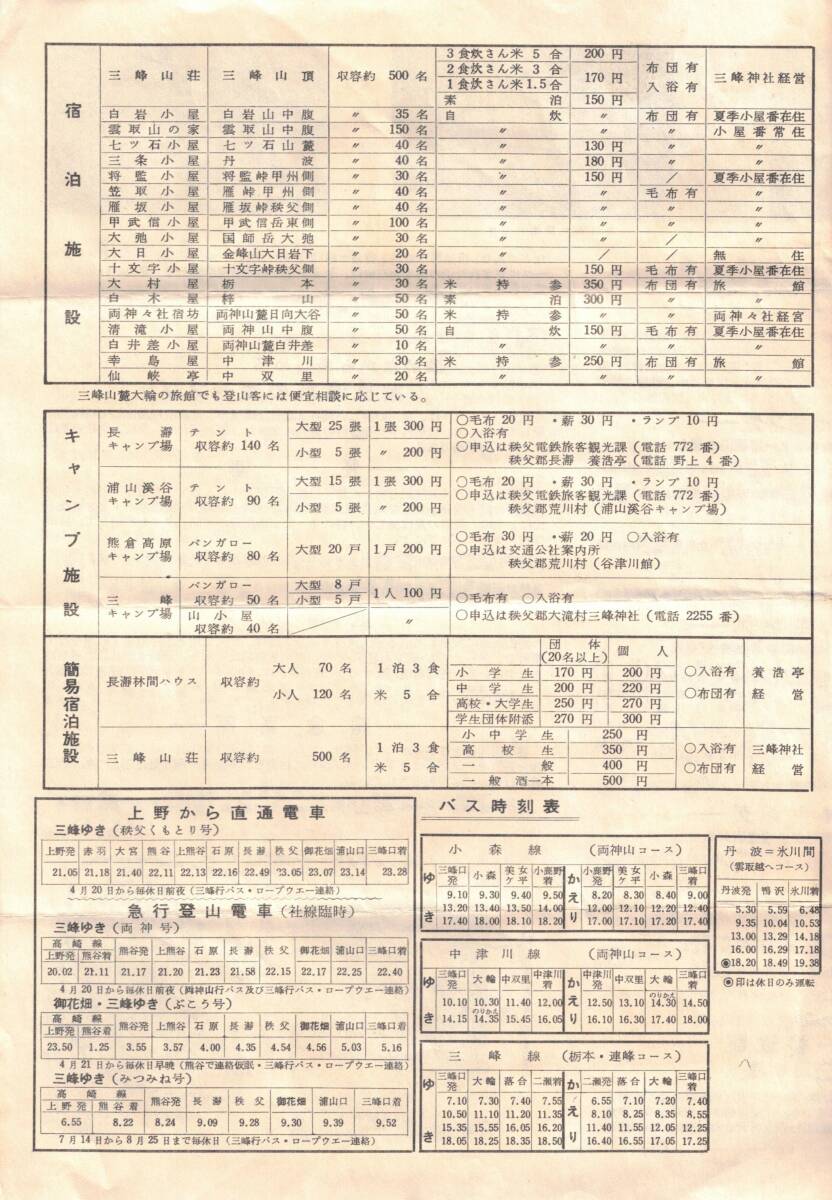 宿泊施設
三峰山荘 三峰山頂 収容約 500名 3食炊さん米 5合 200円 布団有 入浴有 三峰神社経営
2食炊さん米 3合 170円
1食炊さん米 1.5合
素泊 150円
白岩小屋 白岩山中腹 〃 35名 自炊 〃 布団有 夏季小屋番在住
雲取山の家 雲取山中腹 〃 150名 〃 〃 〃 小屋番常住
七ツ石小屋 七ツ石山麓 〃 40名 〃 130円 〃 〃
三条小屋 丹波 〃 40名 〃 180円 〃 〃
将監小屋 将監峠甲州側 〃 30名 〃 150円 / 夏季小屋番在住
笠取小屋 雁峠甲州側 〃 40名 〃 〃 毛布有 〃
雁坂小屋 雁坂峠秩父側 〃 40名 〃 〃 〃 〃
甲武信小屋 甲武信岳東側 〃 100名 〃 〃 〃 〃
大弛小屋 国師岳大弛 〃 30名 〃 〃 / 〃
大日小屋 金峰山大日岩下 〃 20名 〃 / / 無住
十文字小屋 十文字峠秩父側 〃 30名 〃 150円 毛布有 夏季小屋番在住
大村屋 栃本 〃 30名 米持参 350円 布団有 旅館
白木屋 梓山 〃 50名 素泊 300円 〃 〃
両神々社宿坊 両神山麓日向大谷 〃 50名 米持参 〃 〃 両神々社経営
清滝小屋 両神山中腹 〃 50名 自炊 150円 毛布有 夏季小屋番在住
白井差小屋 両神山麓白井差 〃 10名 〃 〃 〃 〃
幸島屋 中津川 〃 30名 米持参 250円 布団有 旅館
仙峡亭 中双里 〃 20名 〃 〃 〃 〃
三峰山麓大輪の旅館でも登山客には便宜相談に応じている。
キャンプ施設
長瀞キャンプ場 テント 収容約 140名 大型 25張 1張 300円 ○毛布 20円 ・薪 30円 ・ランプ 10円
○入浴有
小型 5張 〃 200円 ○申込は秩父電鉄旅客観光課(電話 772番)
秩父郡長瀞 養浩亭(電話 野上 4番)
浦山溪谷キャンプ場 テント 収容約 90名 大型 15張 1張 300円 ○毛布 20円 ・薪 30円 ・ランプ 10円
○申込は秩父電鉄旅客観光課(電話 772番)
小型 5張 〃 200円 秩父郡荒川村(浦山溪谷キャンプ場)
熊倉高原キャンプ場 バンガロー 収容約 80名 大型 20戸 1戸 200円 ○毛布 30円 ・薪 20円 ○入浴有
○申込は交通公社案内所
秩父郡荒川村(谷津川館)
三峰キャンプ場 バンガロー 収容約 50名 大型 8戸 小型 5戸 1人 100円 ○毛布有 ○入浴有
山小屋 収容約 40名 〃 ○申込は秩父郡大滝村三峰神社(電話 2255番)
簡易宿泊施設
団体(20名以上) 個人
長瀞林間ハウス 収容約 大人 70名 小人 120名 1泊3食 米5合 ○入浴有 ○布団有 養浩亭経営
小学生 170円 200円
中学生 200円 220円
高校・大学生 250円 270円
学生団体附添 270円 300円
三峰山荘 収容約 500名 1泊3食 米5合 ○入浴有 ○布団有 三峰神社経営
小中学生 250円
高校生 350円
一般 400円
一般 酒一本 500円
上野から直通電車
三峰ゆき(秩父くもとり号)
上野発 赤羽 大宮 熊谷 上熊谷 石原 長瀞 秩父 御花畑 浦山口 三峰口着
21.05 21.18 21.40 22.11 22.13 22.16 22.49 23.05 23.07 23.14 23.28
4月20日から毎休日前夜(三峰行バス・ロープウエー連絡)
急行登山電車(社線臨時)
三峰ゆき(両神号)
高崎線 上野発 熊谷着 熊谷発 上熊谷 石原 長瀞 秩父 御花畑 浦山口 三峰口着
20.02 21.11 21.17 21.20 21.23 21.58 22.15 22.17 22.25 22.40
4月20日から毎休日前夜(両神山行バス及び三峰行バス・ロープウエー連絡)
御花畑・三峰ゆき(ぶこう号)
高崎線 上野発 熊谷着 熊谷発 上熊谷 石原 長瀞 秩父 御花畑 浦山口 三峰口着
23.50 1.25 3.55 3.57 4.00 4.35 4.54 4.56 5.03 5.16
4月21日から毎休日早暁(熊谷で連絡仮眠・三峰行バス・ロープウエー連絡)
三峰ゆき(みつみね号)
高崎線 上野発 熊谷着 熊谷発 長瀞 秩父 御花畑 浦山口 三峰口着
6.55 8.22 8.24 9.09 9.28 9.30 9.39 9.52
7月14日から8月25日まで毎休日(三峰行バス・ロープウエー連絡)
バス時刻表
小森線 (両神山コース)
ゆき 三峰口発 小森 美女ケ平 小鹿野着 かえり 小鹿野発 美女ケ平 小森 三峰口着
9.10 9.30 9.40 9.50 8.20 8.30 8.40 9.00
13.20 13.40 13.50 14.00 12.00 12.10 12.20 12.40
17.40 18.00 18.10 18.20 17.00 17.10 17.20 17.40
中津川線 (両神山コース)
ゆき 三峰口発 大輪 中双里 中津川着 かえり 中津川発 中双里 大輪 三峰口着
10.10 10.30 11.40 12.00 12.50 13.10 のりかえ 14.30 14.50
14.15 のりかえ 14.35 15.45 16.05 16.10 16.30 17.40 18.00
三峰線 (栃本・連峰コース)
ゆき 三峰口発 大輪 落合 二瀬着 かえり 二瀬発 落合 大輪 三峰口着
7.10 7.30 7.40 7.55 6.55 7.10 7.20 7.40
10.50 11.10 11.20 11.35 8.10 8.25 8.35 8.55
15.35 15.55 16.05 16.20 11.40 11.55 12.05 12.25
18.05 18.25 18.35 18.50 16.40 16.55 17.05 17.25
丹波=氷川間
(雲取越へコース)
丹波発 鴨沢 氷川着
5.30 5.59 6.48
9.35 10.04 10.53
13.00 13.29 14.18
16.00 16.29 17.18
◉18.20 18.49 19.38
◉印は休日のみ運転